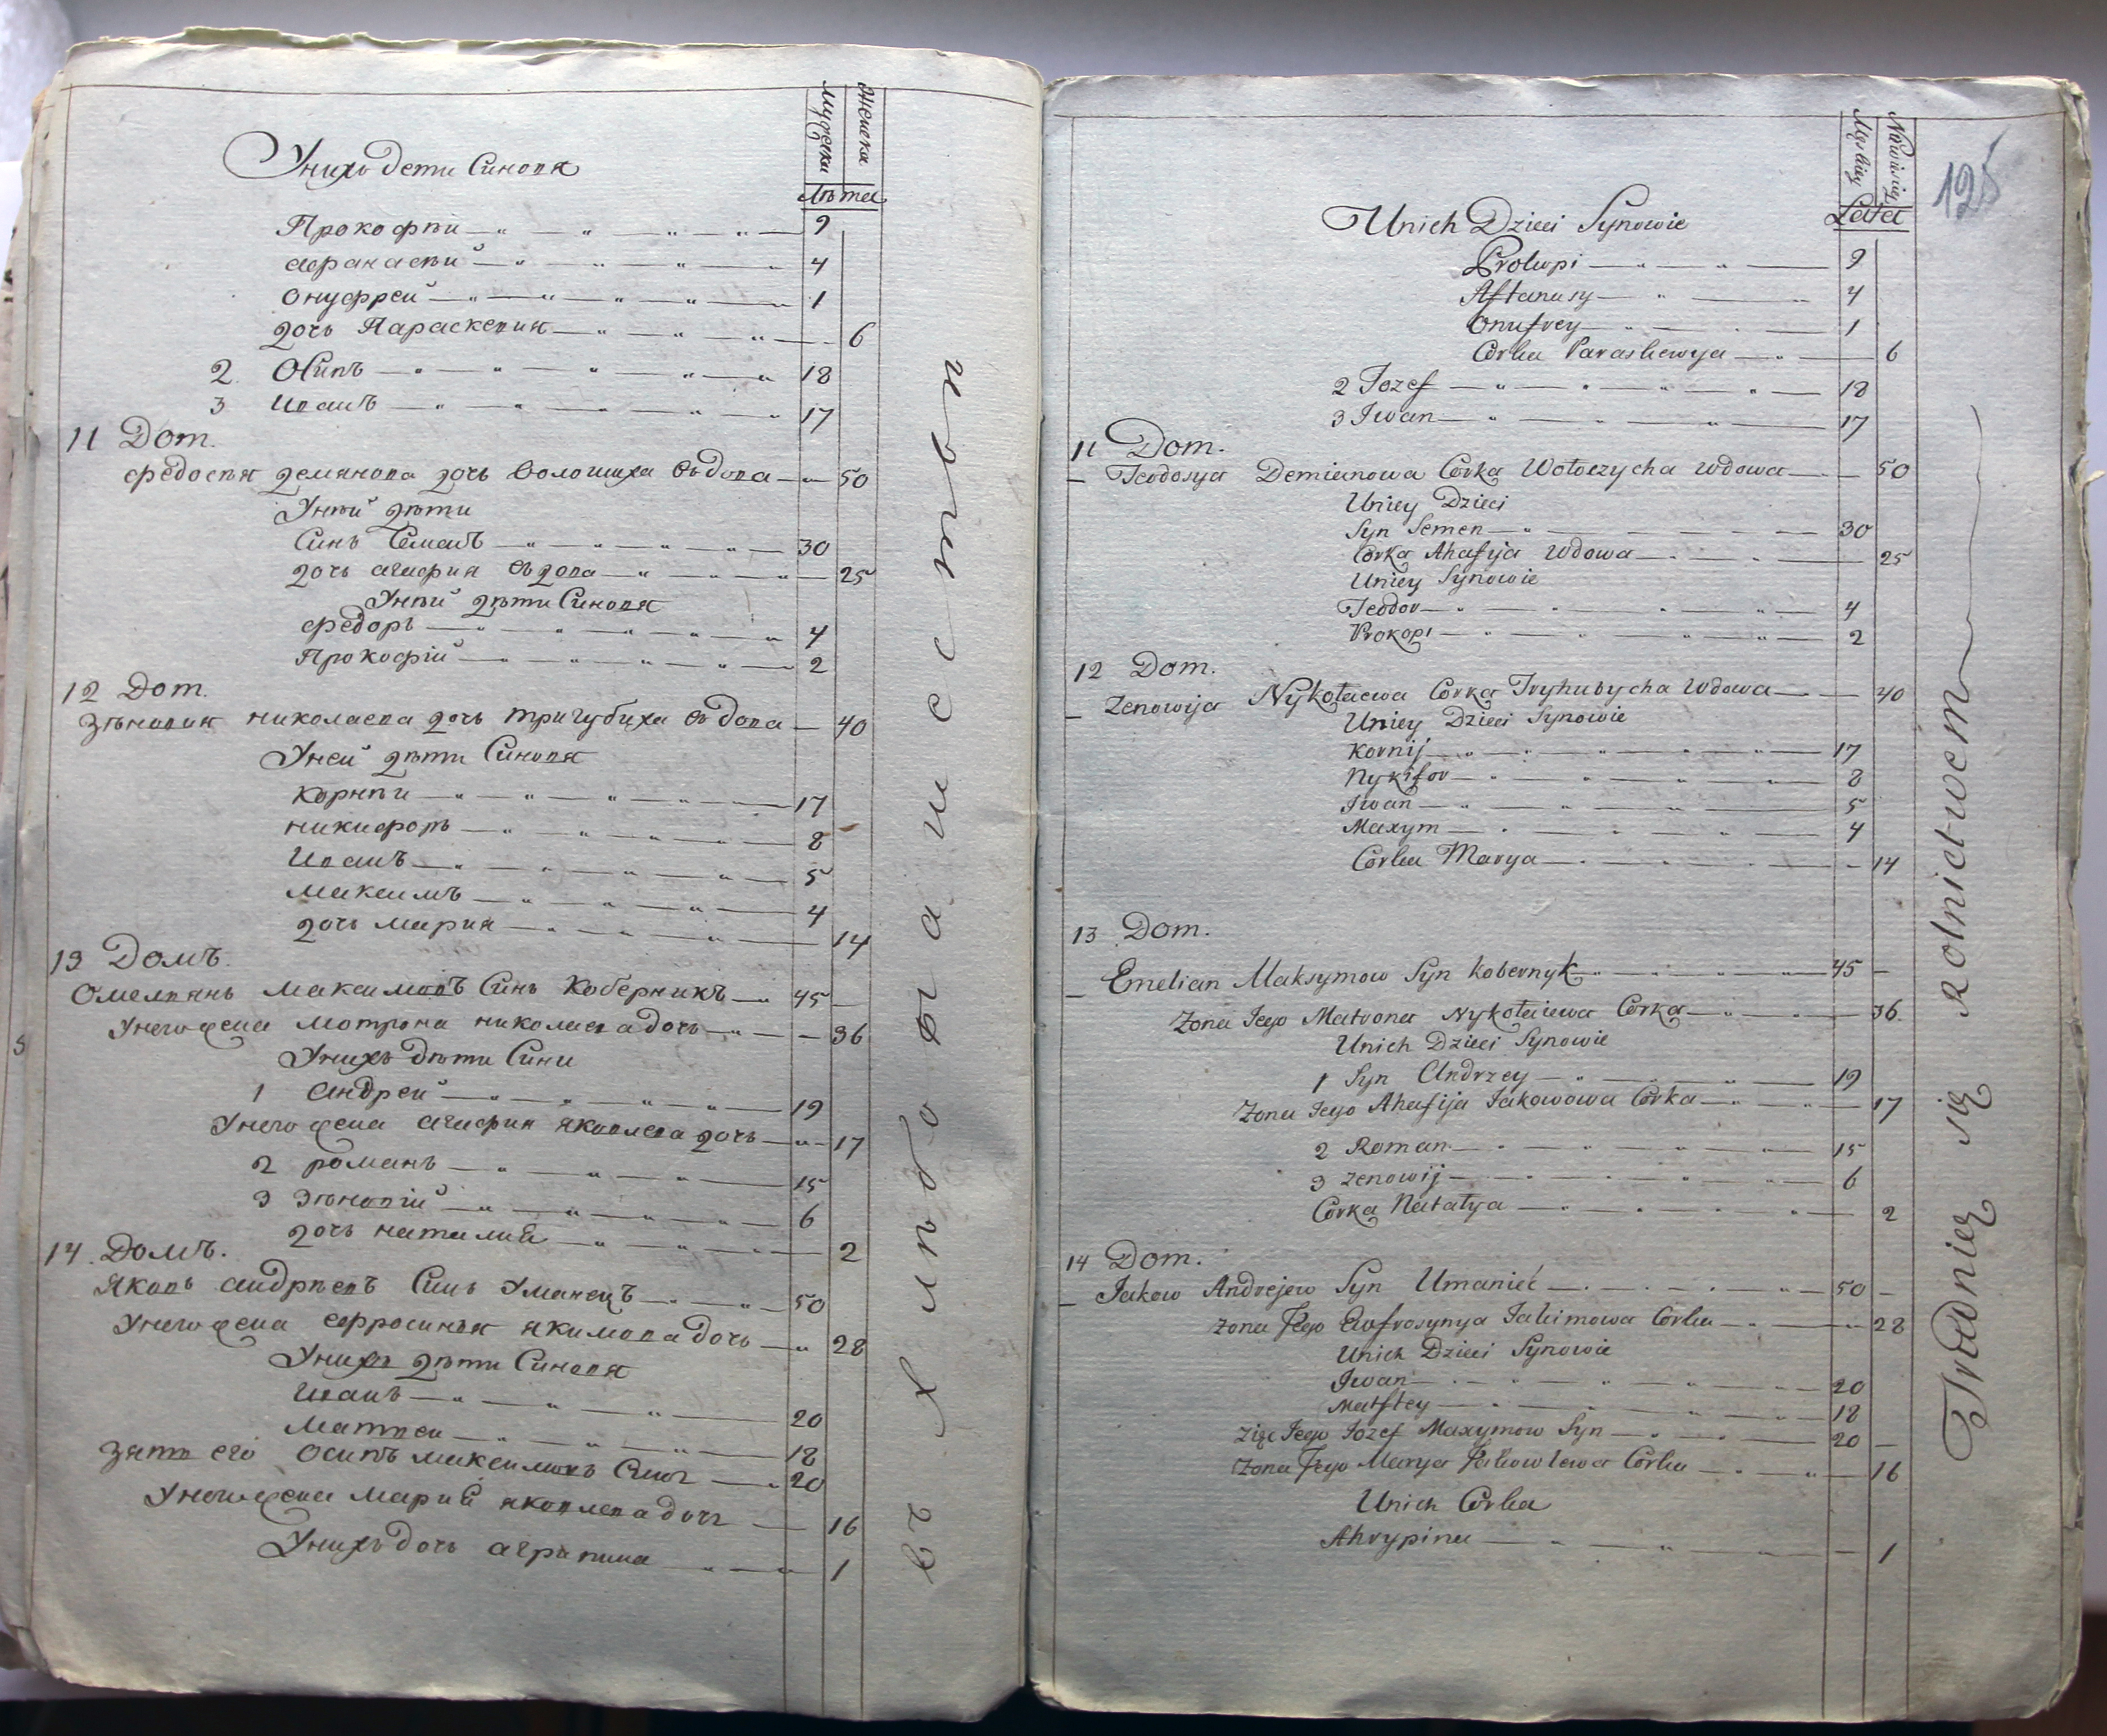 Мужеска
Женска
Лѣта
Унихъ дети Синовя
Прокофѣи 9
Афанасѣй 4
Онуфрей 1
дочь Параскевия 6
2 Осипъ 18
3 Иванъ 17
11 Dom.
Федосѣя демянова дочь Волошиха вдова 50
Унѣй дѣти
Синъ Семенъ 30
дочь агафия вдова 25
Унѣй дѣти Синовя
Федоръ 4
Прокофій 2
12 Dom.
Зѣновия николаева дочь тригубиха вдова 40
Уней дѣти Синовя
Корнѣи 17
никифоръ 8
Иванъ 5
Максимъ 4
дочь Мария 14
13 Домъ.
Омелянъ Максимовъ Синъ Коберникъ 45
Унего жена Мотрона николаева дочь 36
Унихъ дѣти Сини
1 Андрей 19
Унего жена агафия яковлева дочь 17
2 романъ 15
3 Зѣновій 6
дочь наталия 2
14 Домъ.
Яковъ андрѣевъ Синъ Уманецъ 50
Унего жена ефросиния якимова дочь 28
Унихъ дѣти Синовя
Иванъ 20
Матвеи 18
Зять его осипъ максимовъ Синъ 20
Унего жена Мария яковлева дочь 16
Унихъ дочь агрипина 1
въ хлѣбопашествѣ
125
Męskiey
Niewiesciey
Lata
Unich Dzieci Synowie
Prokopi 9
Aftanasy 4
Onufrey 1
Corka Paraskewya 6
2 Jozef 18
3 Iwan 17
11 Dom.
Teodosya Demianowa Corka Wołoczycha wdowa 50
Uniey Dzieci
Syn Semen 30
Corka Ahafija Wdowa 25
Uniey Synowie
Teodor 4
Prokopi 2
12 Dom.
Zenowija Nykołaewa Corka Tryhubycha Wdowa 40
Uniey Dzieci Synowie
Kornij 17
Nykifor 8
Iwan 5
Maxym 4
Corka Marya 14
13 Dom.
Emelian Maksymow Syn Kobernyk 45
Zona Jego Matrona Nykołaiewa Corka 36
Unich Dzieci Synowie
1 Syn Andrzey 19
Zona Jego Ahafija Jakowowa Corka 17
2 Roman 15
3 Zenowij 6
Corka Natalya 2
14 Dom.
Jakow Andrejew Syn Umanieć 50
Zona Jego Eufrosynya Jakimowa Corka 28
Unich Dzieci Synowie
Iwan 20
Matftey 18
Zięć Jego Jozef Maxymow Syn 20
Zona Jego Marya Jakowlewa Corka 16
Unich Corka
Ahrypina 1
Trudnieą się Rolnictwem